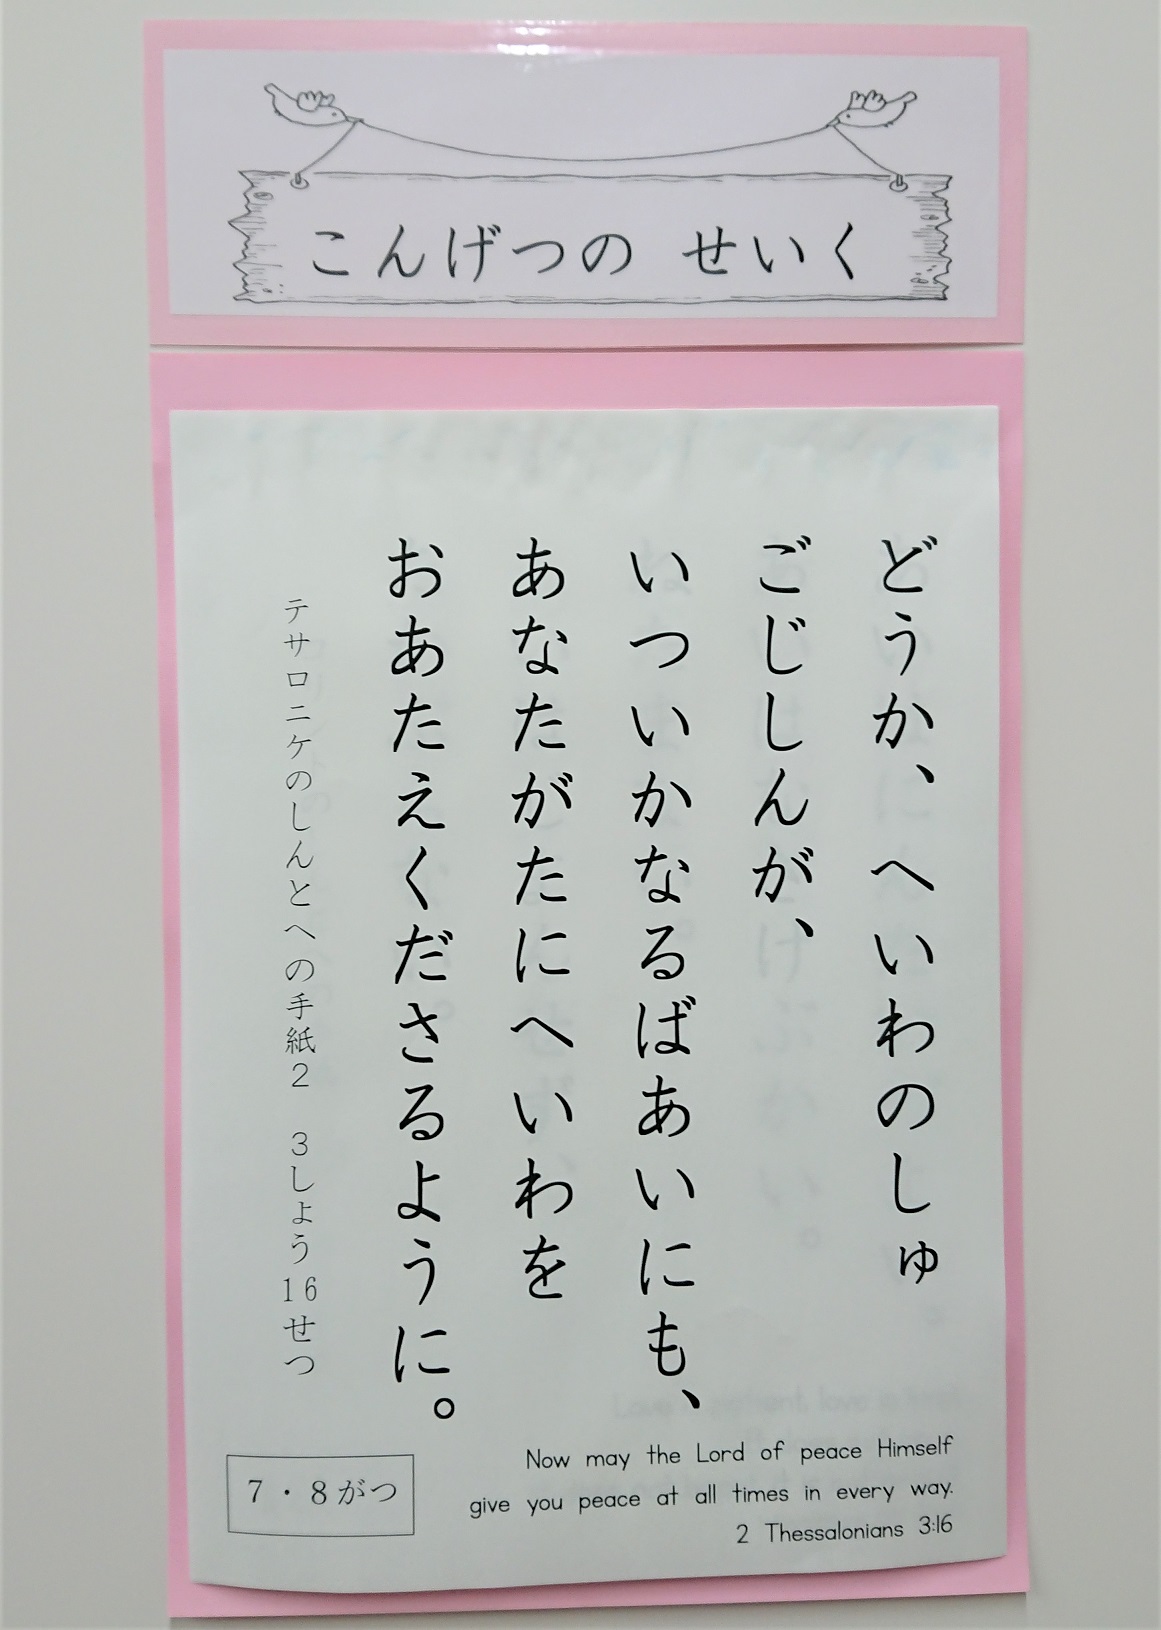 こんげつの せいく
どうか、へいわのしゅ
ごじしんが、
いついかなるばあいにも、
あなたがたにへいわを
おあたえくださるように。
テサロニケのしんとへの手紙2 3しょう16せつ
7・8がつ
Now may the Lord of peace Himself
give you peace at all times in every way.
2 Thessalonians 3:16